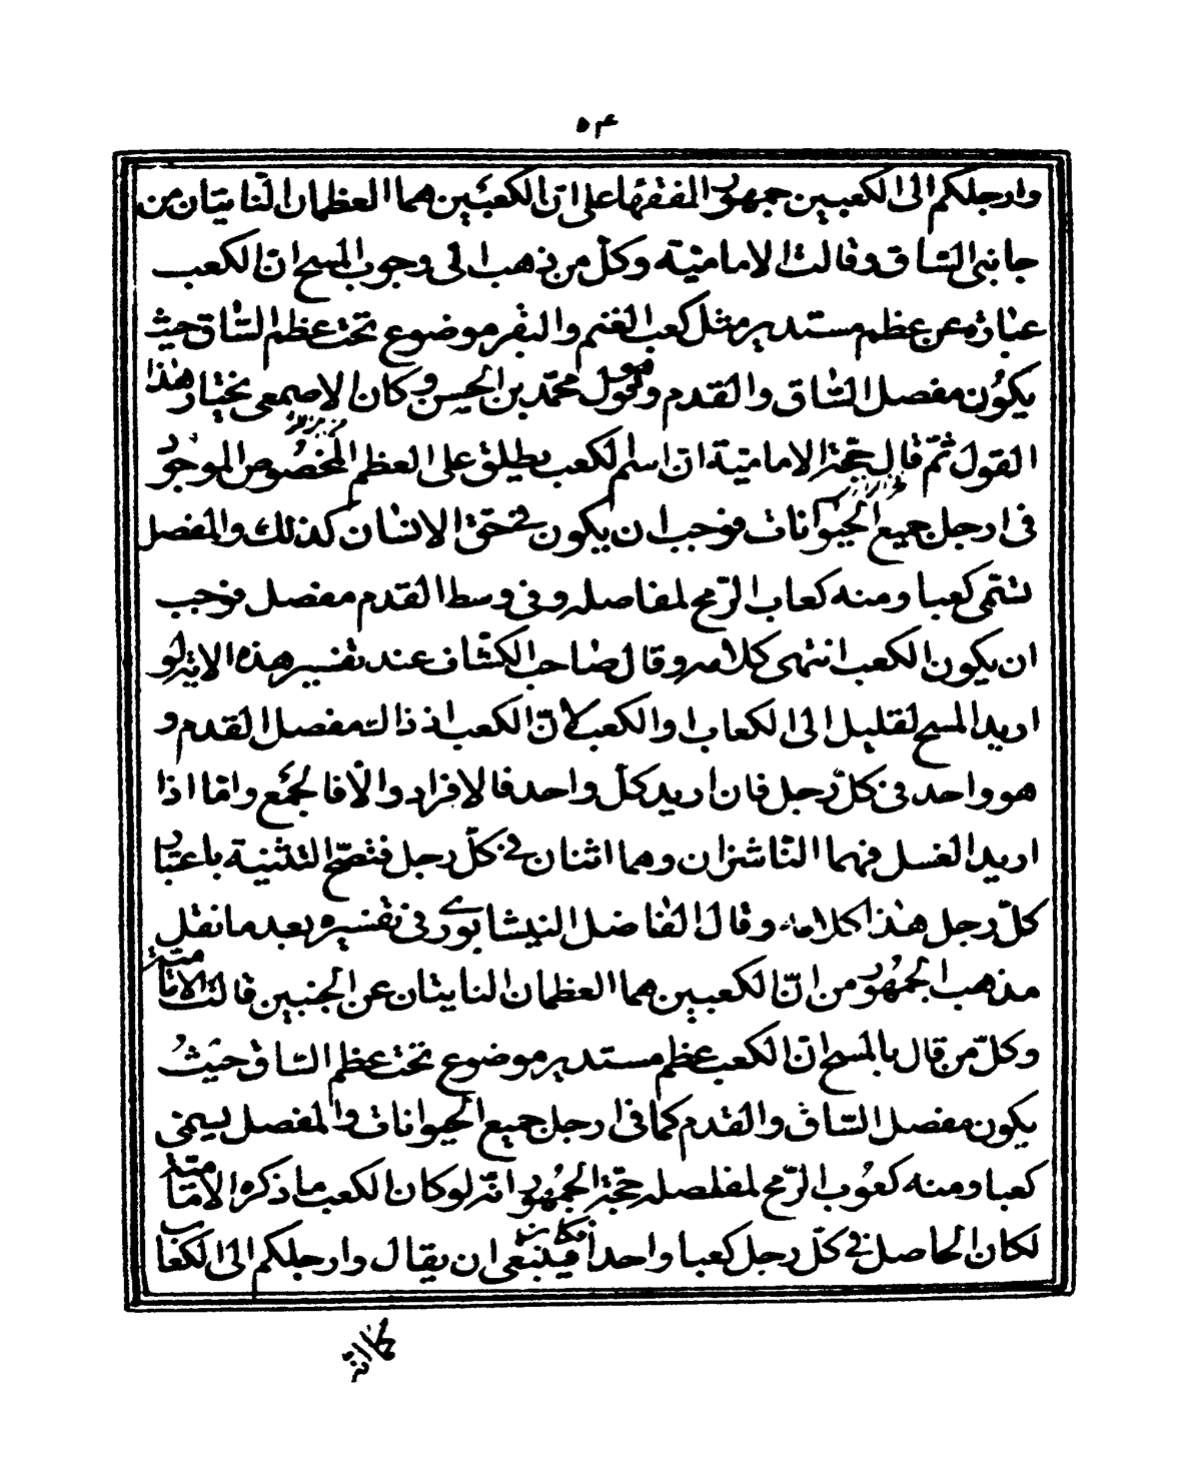 ٥٤
وارجلكم الى الكعبين جمهور الفقهاء على انّ الكعبين هما العظمان النّاتيان من
جانبى السّاق وقالت الاماميّة وكلّ من ذهب الى وجوب المسح ان الكعب
عبارة عن عظم مستدير مثل كعب الغنم والبقر موضوع تحت عظم السّاق حيث
يكون مفصل السّاق والقدم وهو قول محمّد بن الحسن وكان الاصمعى يختار هذا
القول ثمّ قال حجّة الاماميّة ان اسم الكعب يطلق على العظم المخصوص الموجود
فى ارجل جميع الحيوانات فوجب ان يكون فى حقّ الانسان كذلك والمفصل
تسمّى كعبا ومنه كعاب الرّمح لمفاصله وفى وسط القدم مفصل فوجب
ان يكون الكعب انتهى كلامه وقال صاحب الكشّاف عند تفسير هذه الاية لو
اريد المسح لقليل الى الكعاب او الكعب لانّ الكعب اذ ذاك مفصل القدم و
هو واحد فى كلّ رجل فان اريد كلّ واحد فالافراد والّا فالجمع وامّا اذا
اريد الغسل فهما النّاشزان وهما اثنان فى كلّ رجل فتصحّ التثنية باعتبار
كلّ رجل هذا كلامه وقال الفاضل النيشابورى فى تفسيره بعد ما نقل
مذهب الجمهور من انّ الكعبين هما العظمان الناتيان عن الجنبين قالت الاماميّة
وكلّ من قال بالمسح انّ الكعب عظم مستدير موضوع تحت عظم السّاق حيث
يكون مفصل السّاق والقدم كما فى ارجل جميع الحيوانات والمفصل يسمّى
كعبا ومنه كعوب الرّمح لمفاصله حجّة الجمهور انّه لو كان الكعب ما ذكره الاماميّة
لكان الحاصل فى كلّ رجل كعبا واحداً فكان ينبغى ان يقال وارجلكم الى الكعاب
كما انّه